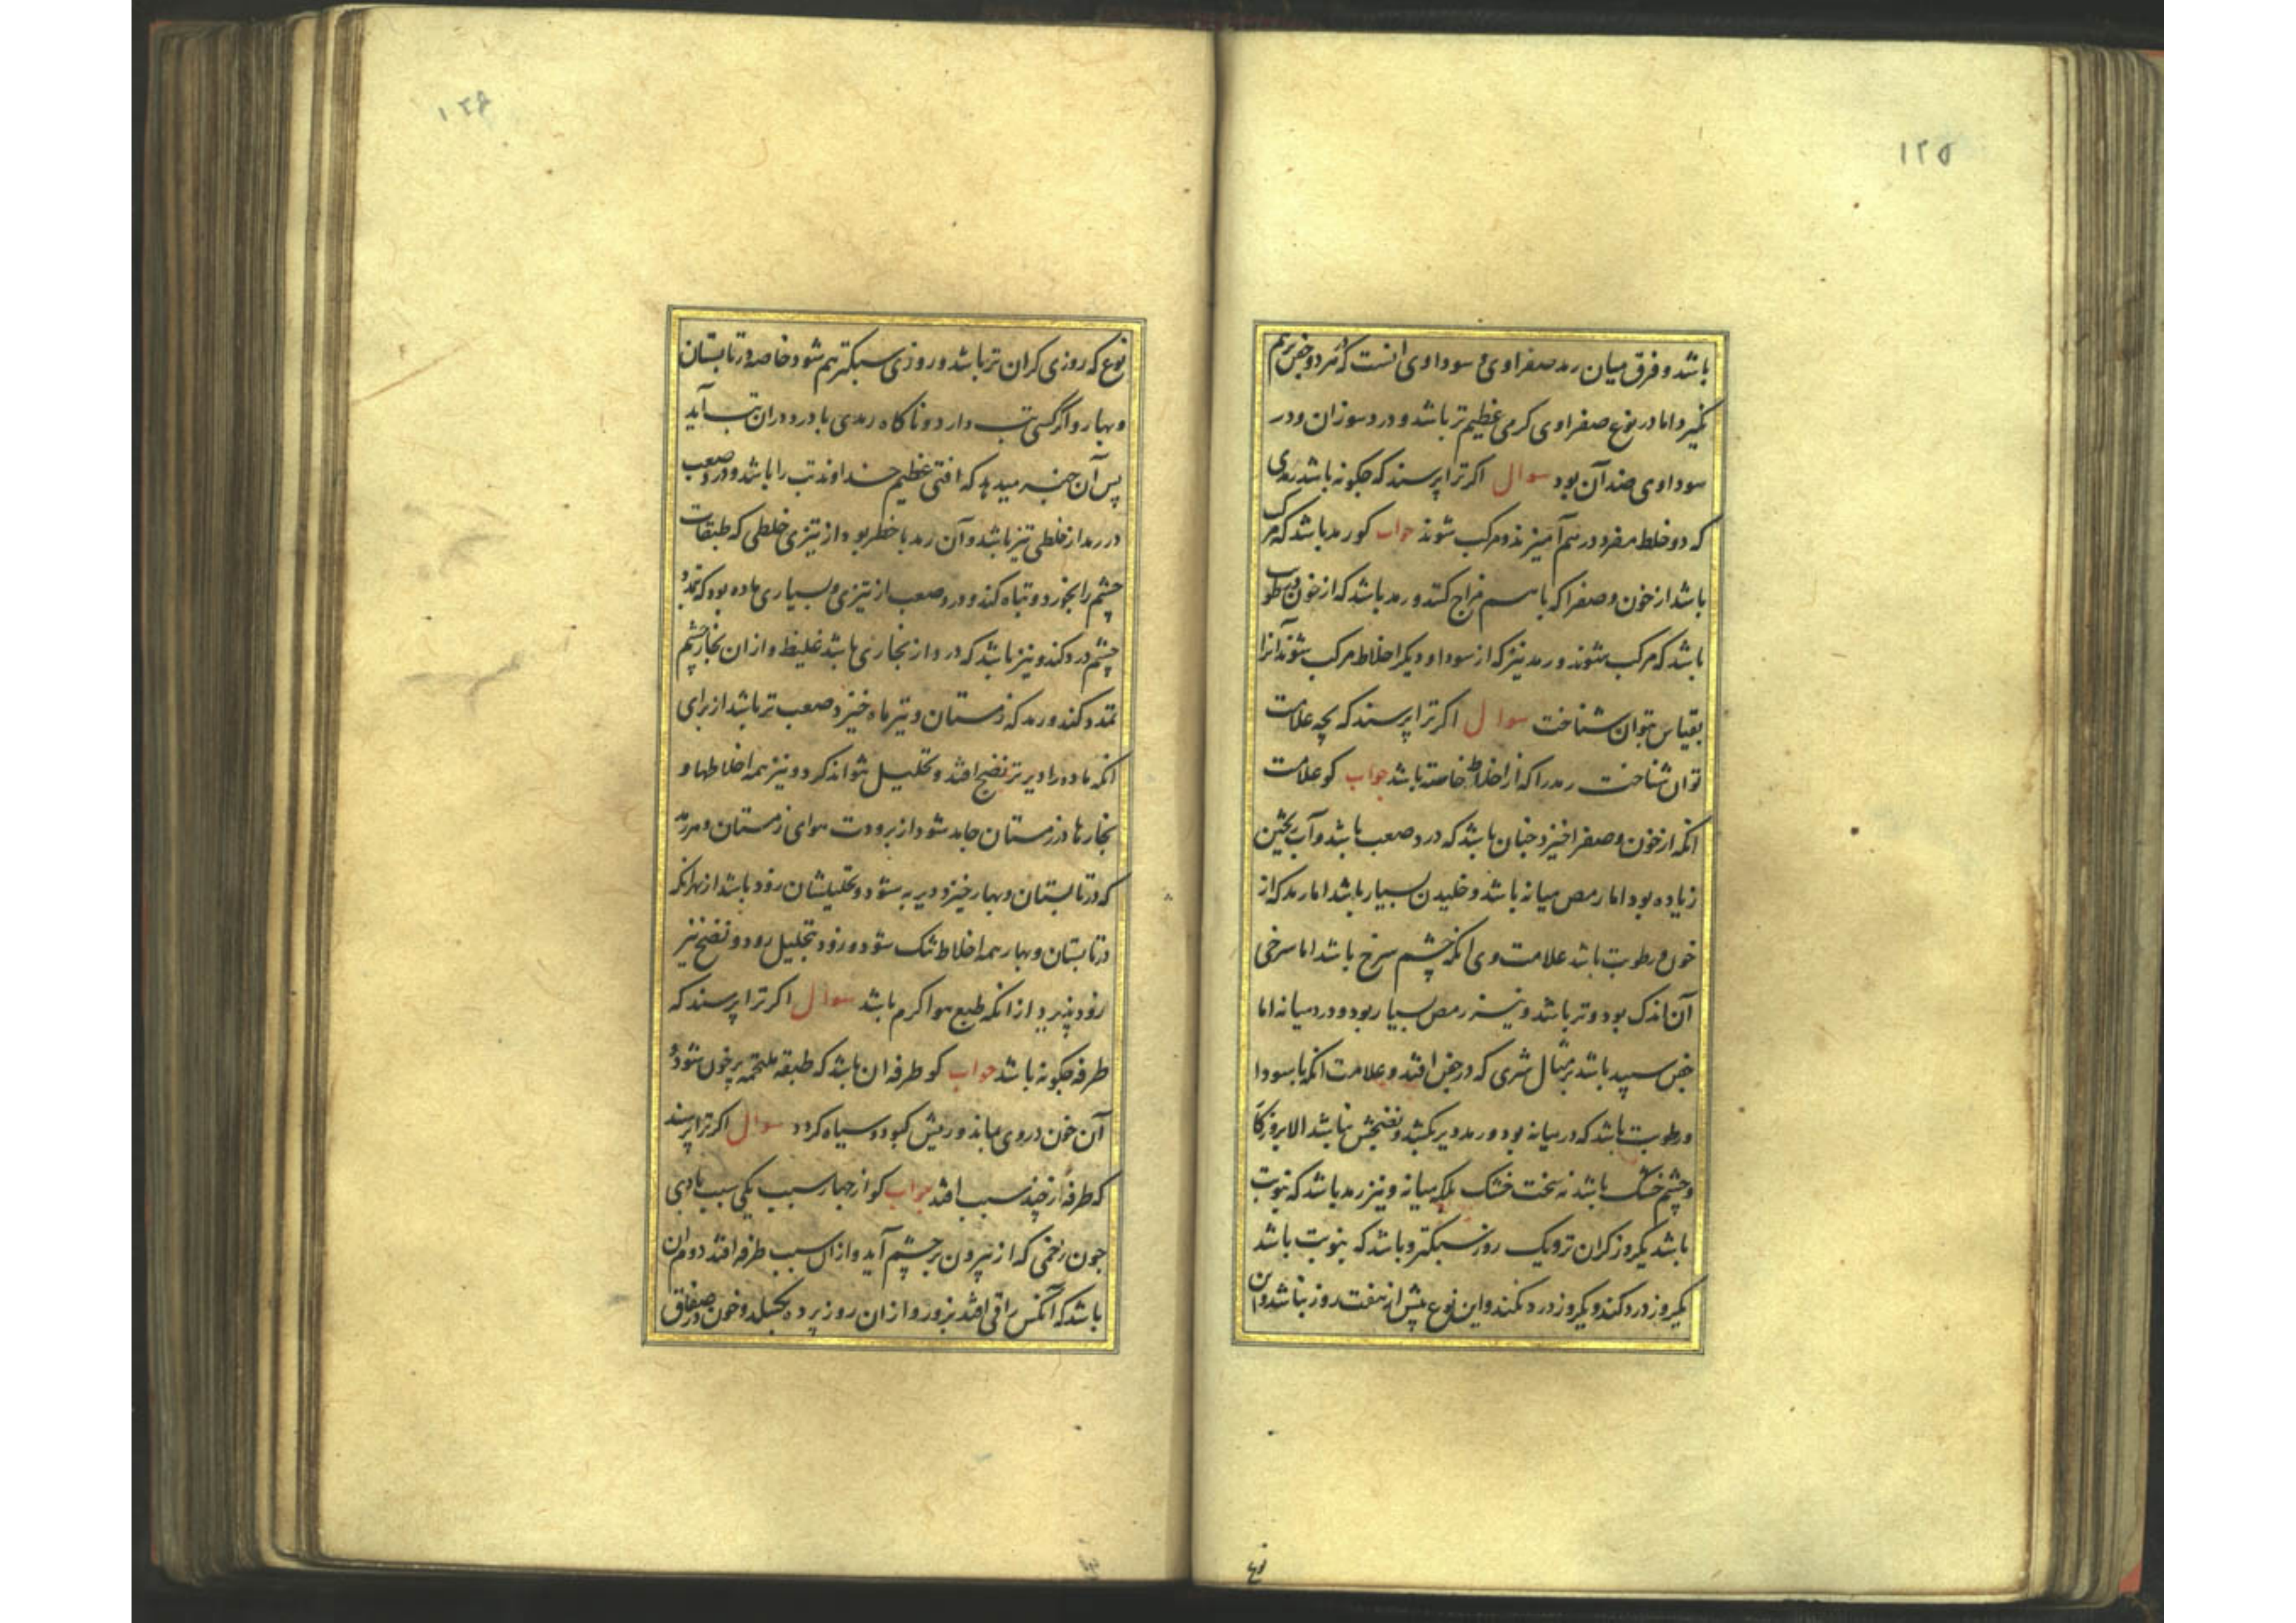 ۱۲۵
باشد و فرق میان رمد صفراوی و سوداوی انست که هر دو جفن برهم
نگیرد اما در نوع صفراوی کرمی عظیم تر باشد و درد سوزان و در
سوداوی ضد آن بود سوال اکر ترا پرسند که چکونه باشد رمدی
که دو خلط مفرد در هم آمیزند و مرکب شوند جواب کو رمد باشد که مرکب
باشد از خون و صفرا که با هم مزاج کنند و رمد باشد که از خون و رطوبت
باشد که مرکب شوند و رمد نیز که از سودا و دیکر اخلاط مرکب شوند آنرا
بقیاس بتوان شناخت سوال اکر ترا پرسند که بچه علامت
توان شناخت رمد را که از اخلاط خاسته باشد جواب کو علامت
انکه از خون و صفرا خیزد جنان باشد که درد صعب باشد و آب
زیاده بود اما رمص میانه باشد و خلیدن بسیار باشد اما رمد که از
خون و رطوبت باشد علامت وی انکه چشم سرخ باشد اما سرخی
آن اندک بود و تر باشد و نیز رمص بسیار بود و درد میانه اما
جفن سپید باشد بر مثال شری که در جفن افتد و علامت انکه با سودا
و رطوبت باشد که درد میانه بود و رمد دیر بکشد و نضجش نباشد الا بروزکا
و چشم خشک باشد نه سخت خشک بلکه میانه و نیز رمد باشد که بنوبت
باشد یکروز کران تر و یک روز سبکتر و باشد که بنوبت باشد
یکروز درد کند و یکروز درد نکند و این نوع پیش از هفت روز نباشد و این
نوع
۱۲۶
نوع که روزی کران تر باشد و روزی سبکتر هم شود خاصه در تابستان
و بهار و اگر کسی تب دارد و ناکاه رمدی با درد دران تب آید
پس آن خبر میدهد که افتی عظیم خداوند تب را باشد و درد صعب
در رمد از خلطی تیز باشد و آن رمد با خطر بود از تیزی خلطی که طبقات
چشم را بخورد و تباه کند و درد صعب از تیزی و بسیاری ماده بود که تمدد
چشم درد کند و نیز باشد که درد از بخاری باشد غلیظ و از ان بخار چشم
تمدد کند و رمد که زمستان و تیرماه خیزد صعب تر باشد از برای
انکه ماده را دیر تر نضج افتد و تحلیل نتواند کرد و نیز همه اخلاطها و
بخارها در زمستان جامد شود از برودت هوای زمستان و هر رمد
که در تابستان و بهار خیزد دیر به شود و تحلیلشان زود باشد از بهر انکه
در تابستان و بهار همه اخلاط تنک شود و زود بتحلیل رود و نضج نیز
زود پذیرد از انکه طبع هوا کرم باشد سوال اکر ترا پرسند که
طرفه چکونه باشد جواب کو طرفه ان باشد که طبقه ملتحمه پر خون شود و
آن خون در وی بماند و رنکش کبود و سیاه کردد سوال اکر ترا پرسند
که طرفه از چند سبب افتد جواب کو از چهار سبب یکی سبب بادی
جون زخمی که از بیرون بر چشم آید و ازان سبب طرفه افتد دوم ان
باشد که آنکس را قی افتد بزور و از ان زور پرده بجسلد و خون در صفاق